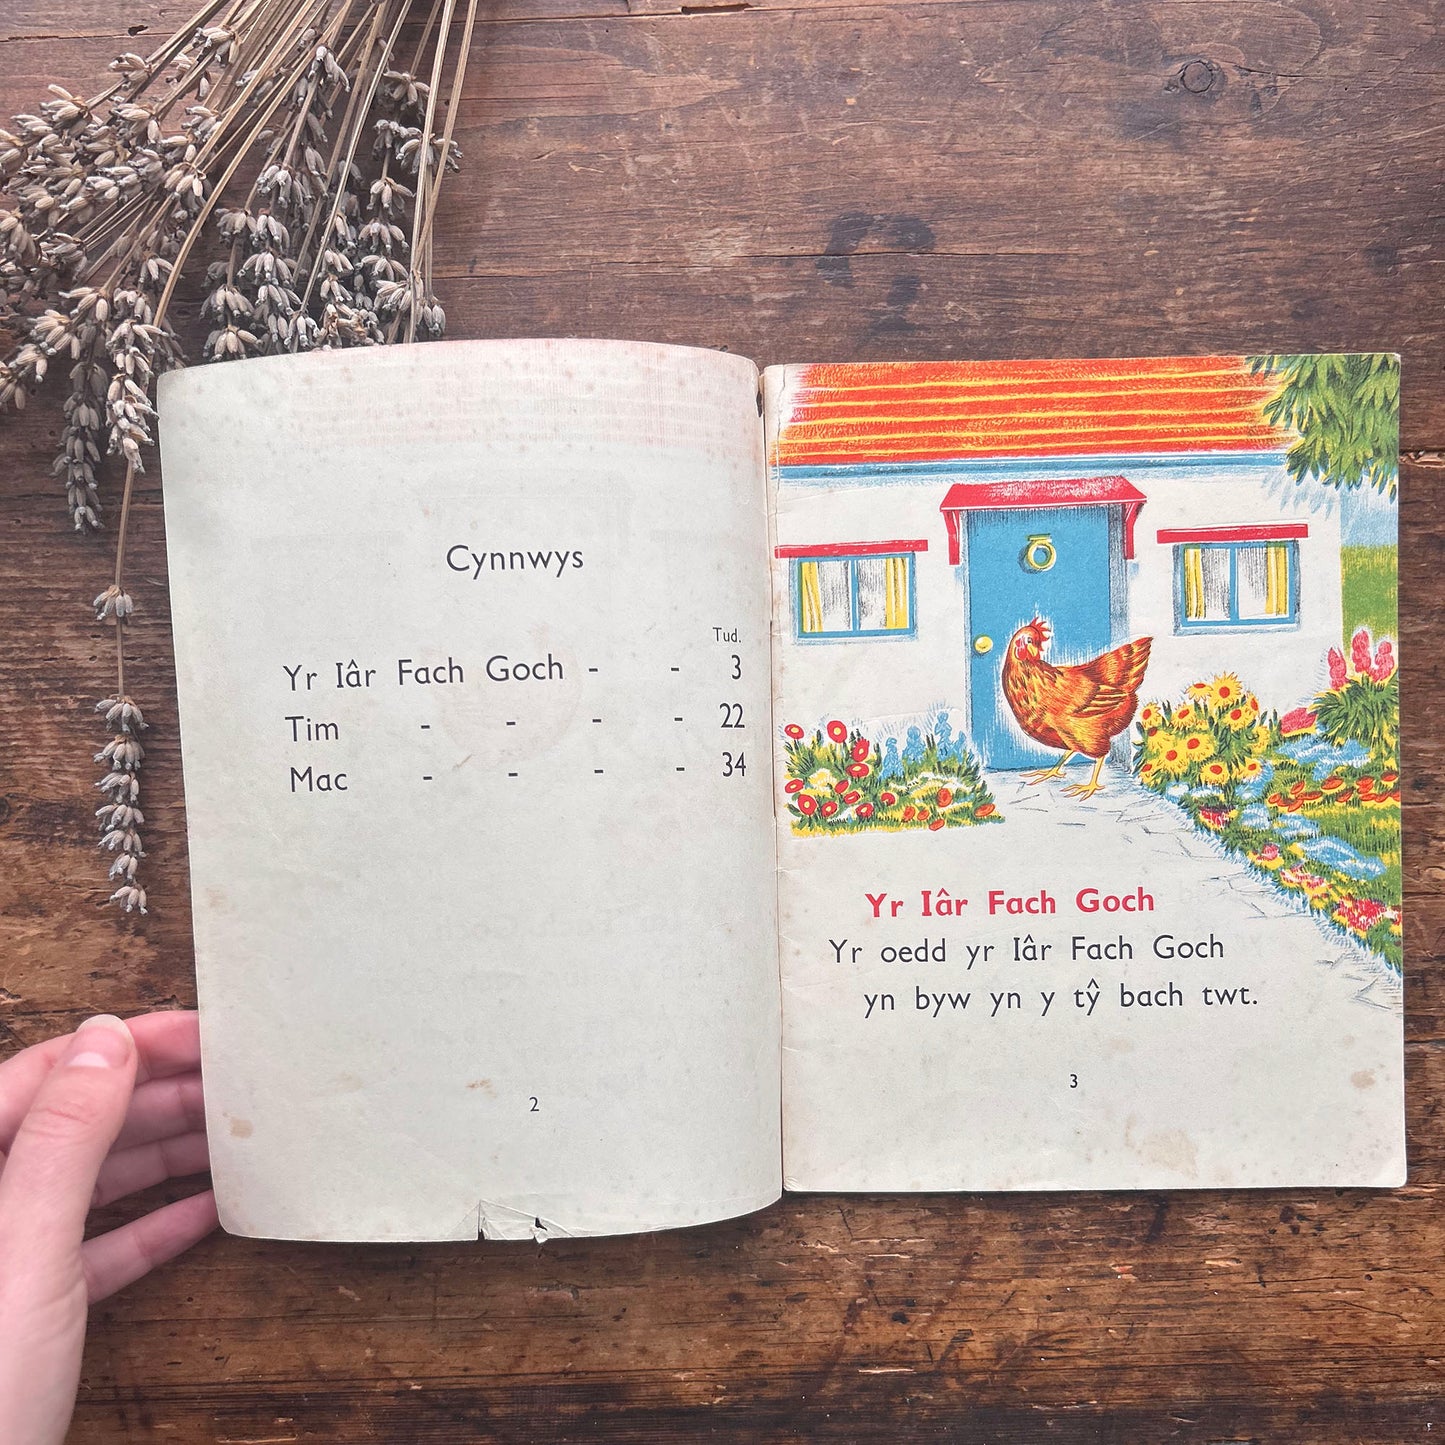 Cynnwys
Tud.
Yr Iâr Fach Goch - - 3
Tim - - - - 22
Mac - - - - 34
2
Yr Iâr Fach Goch
Yr oedd yr Iâr Fach Goch
yn byw yn y tŷ bach twt.
3